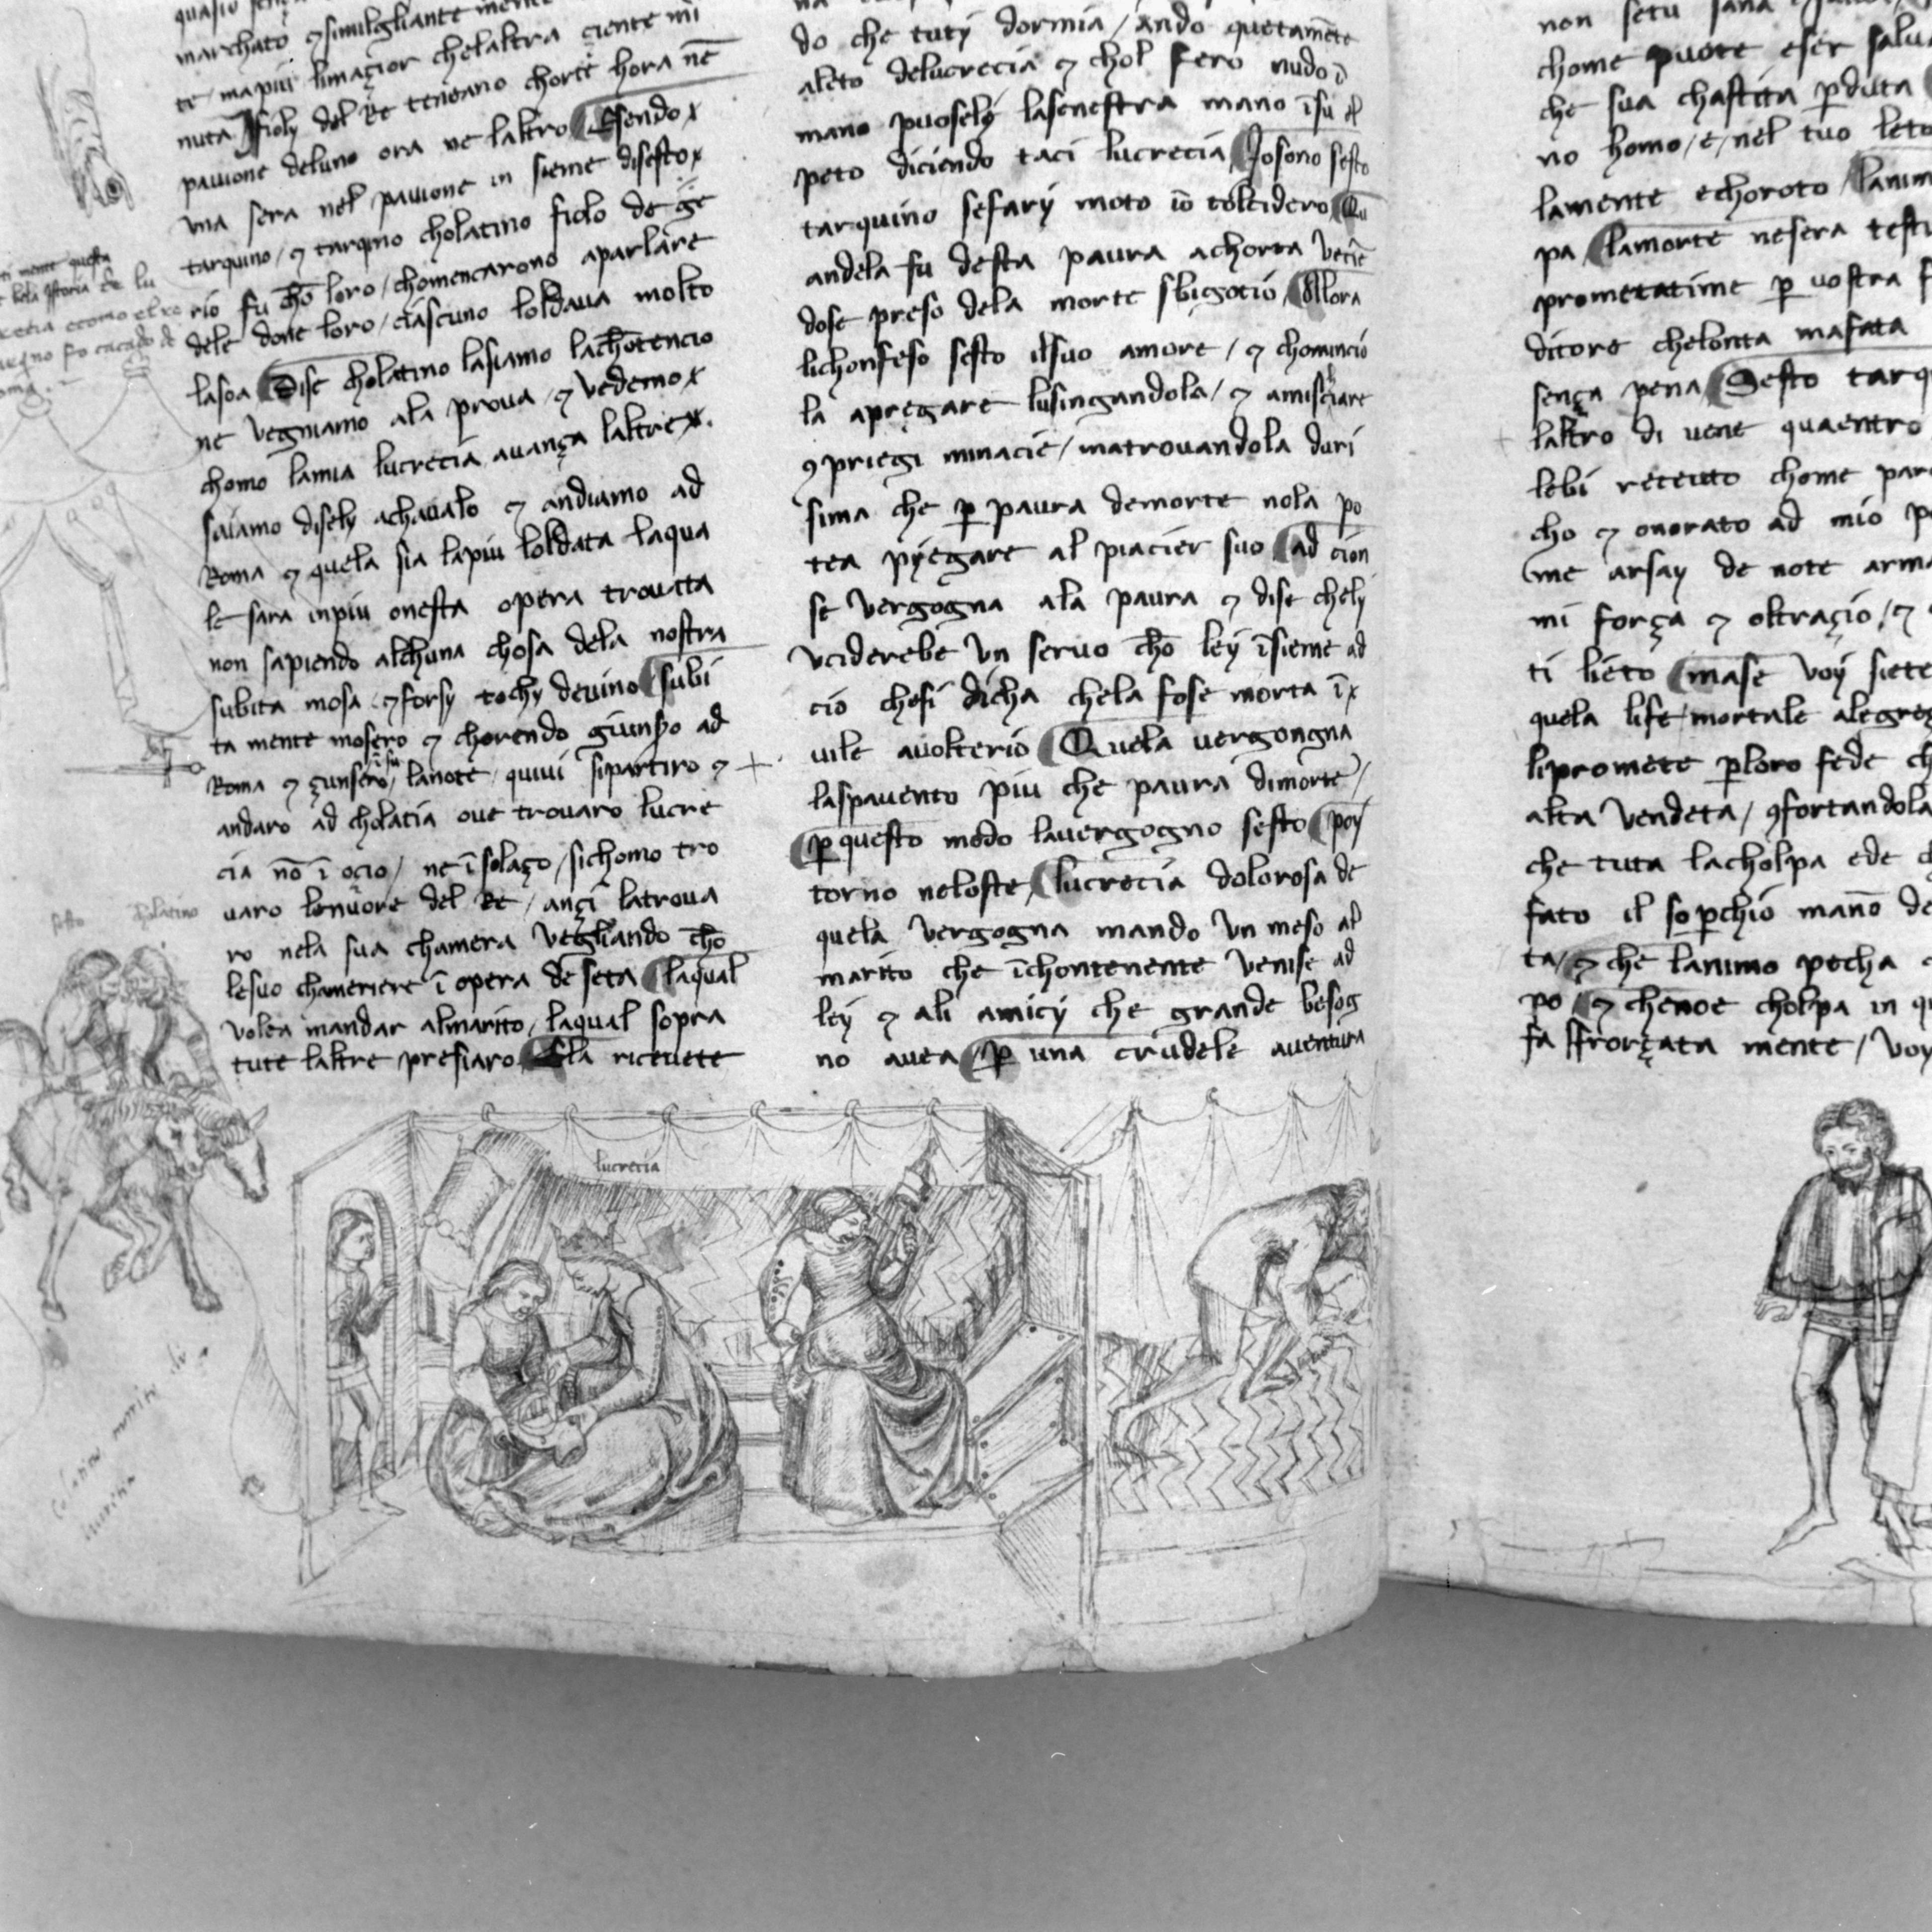 marchato ⁊ similgliante mente
te / ma piu limaçior chelaltra çiente mi
nuta Ifioly del Re tengano chorte hora nē
pauione deluno ora ne laltro Esendo x
una sera nel pauione in sieme disesto x
tarquino / ⁊ tarqino cholatino fiolo de ge
rio fu chō loro / chomencarono aparlare
dele done loro / ciascuno loldaua molto
lasoa Dise cholatino lasiamo lachotencio
ne vegniamo ala proua / ⁊ vedemo x
chomo lamia lucrecia auança laltre x.
saiamo disely achaualo ⁊ andiamo ad
Roma ⁊ quela sia lapiu loldata laqua
le sara inpiu onesta opera trouata
non sapiendo alchuna chosa dela nostra
subita mosa ⁊ forsy tochy deuino subi
ta mente mosero ⁊ chorendo giunso ad
Roma ⁊ çunsero ī su lanote / quiui sipartiro ⁊
andaro ad cholatia oue trouaro lucre
cia nō ī ocio / ne ī solaço / sichomo tro
uaro lenuore del Re / ançi latroua
ro nela sua chamera vegliando chō
lesuo chameriere ī opera de seta laqual
volea mandar almarito / laqual sopra
tute laltre presiaro Ela riceuete
do che tuty dormia / ando quetamēte
aleto delucrecia ⁊ chol fero nudo ī
mano puosely lasenestra mano īsu el
peto diciendo taci lucrecia Iosono sesto
tarquino sefary moto io toleidero Qu
andela fu desta paura achorta veciē
dose preso dela morte sbigotio Allora
lichonfeso sesto ilsuo amore / ⁊ chomincio
la apregare lusingandola / ⁊ amischiare
ꝯ priegi minacie / matrouandola duri
sima che ꝑ paura demorte nola po
tea pyegare al piacier suo ad cion
se vergogna ala paura ⁊ dise chely
vciderebe vn seruo chō ley īsieme ad
cio chesi dicha chela fose morta ī x
uile auolterio Quela vergongna
laspauento piu che paura dimorte /
ꝑ questo modo lauergogno sesto poy
torno neloste / lucrecia dolorosa de
quela vergogna mando vn meso al
marito che īchontenente venise ad
ley ⁊ ali amicy che grande besog
no auea / ꝑ una crudele auentura
non setu sana
chome puote eser salua
che sua chastita ꝑduta
no homo / e / nel tuo leto
lamente echoroto / lanim
pa / lamorte nesera testi
prometatime ꝑ uostra f
ditore chelonta mafata
sença pena Sesto tarq
laltro di uene quaentro
lebi receuto chome par
cho ⁊ onorato ad mio p
me arsay de note arma
mi força ⁊ oltraçio / ⁊
ti lieto mase voy siete
quela life / mortale alegreç
lipromete ꝑloro fede ch
alta vendeta / ꝯfortandola
che tuta lacholpa ede
fato il soꝑchio mano de
ta / ⁊ che lanimo pecha
po / ⁊ chenoe cholpa in q
fa sfrorçata mente / voy
sesto
lucrecia